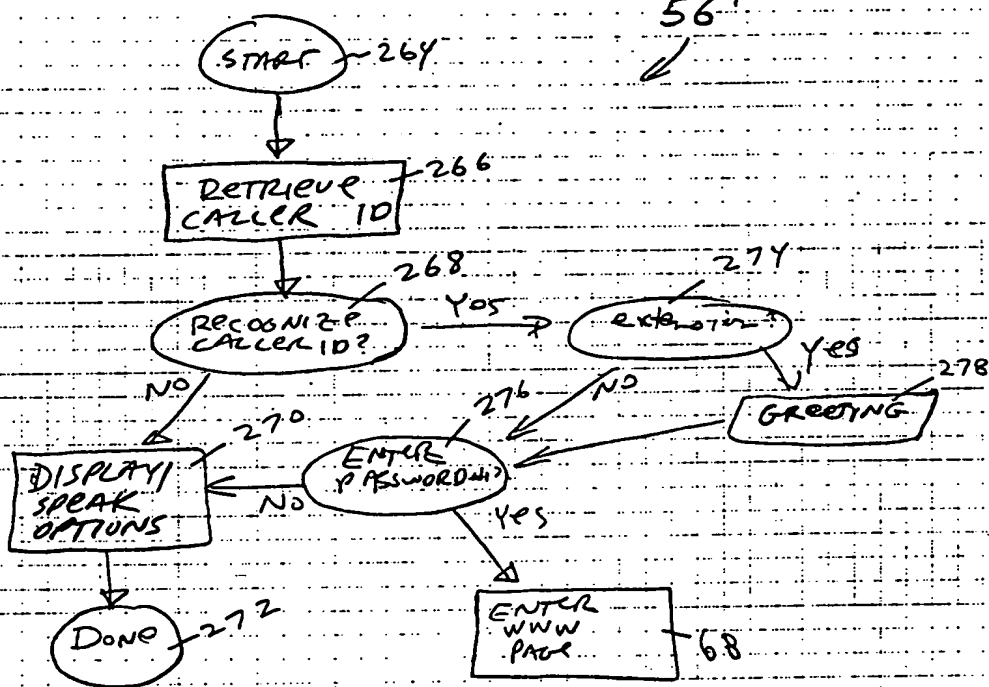 56'
START
264
RETRIEVE
CALLER ID
266
268
RECOGNIZE
CALLER ID?
Yes
274
Yes
278
GREETING
NO
NO
276
ENTER
270
DISPLAY/
SPEAK
OPTIONS
NO
Yes
DONE
272
ENTER
WWW
PAGE
68